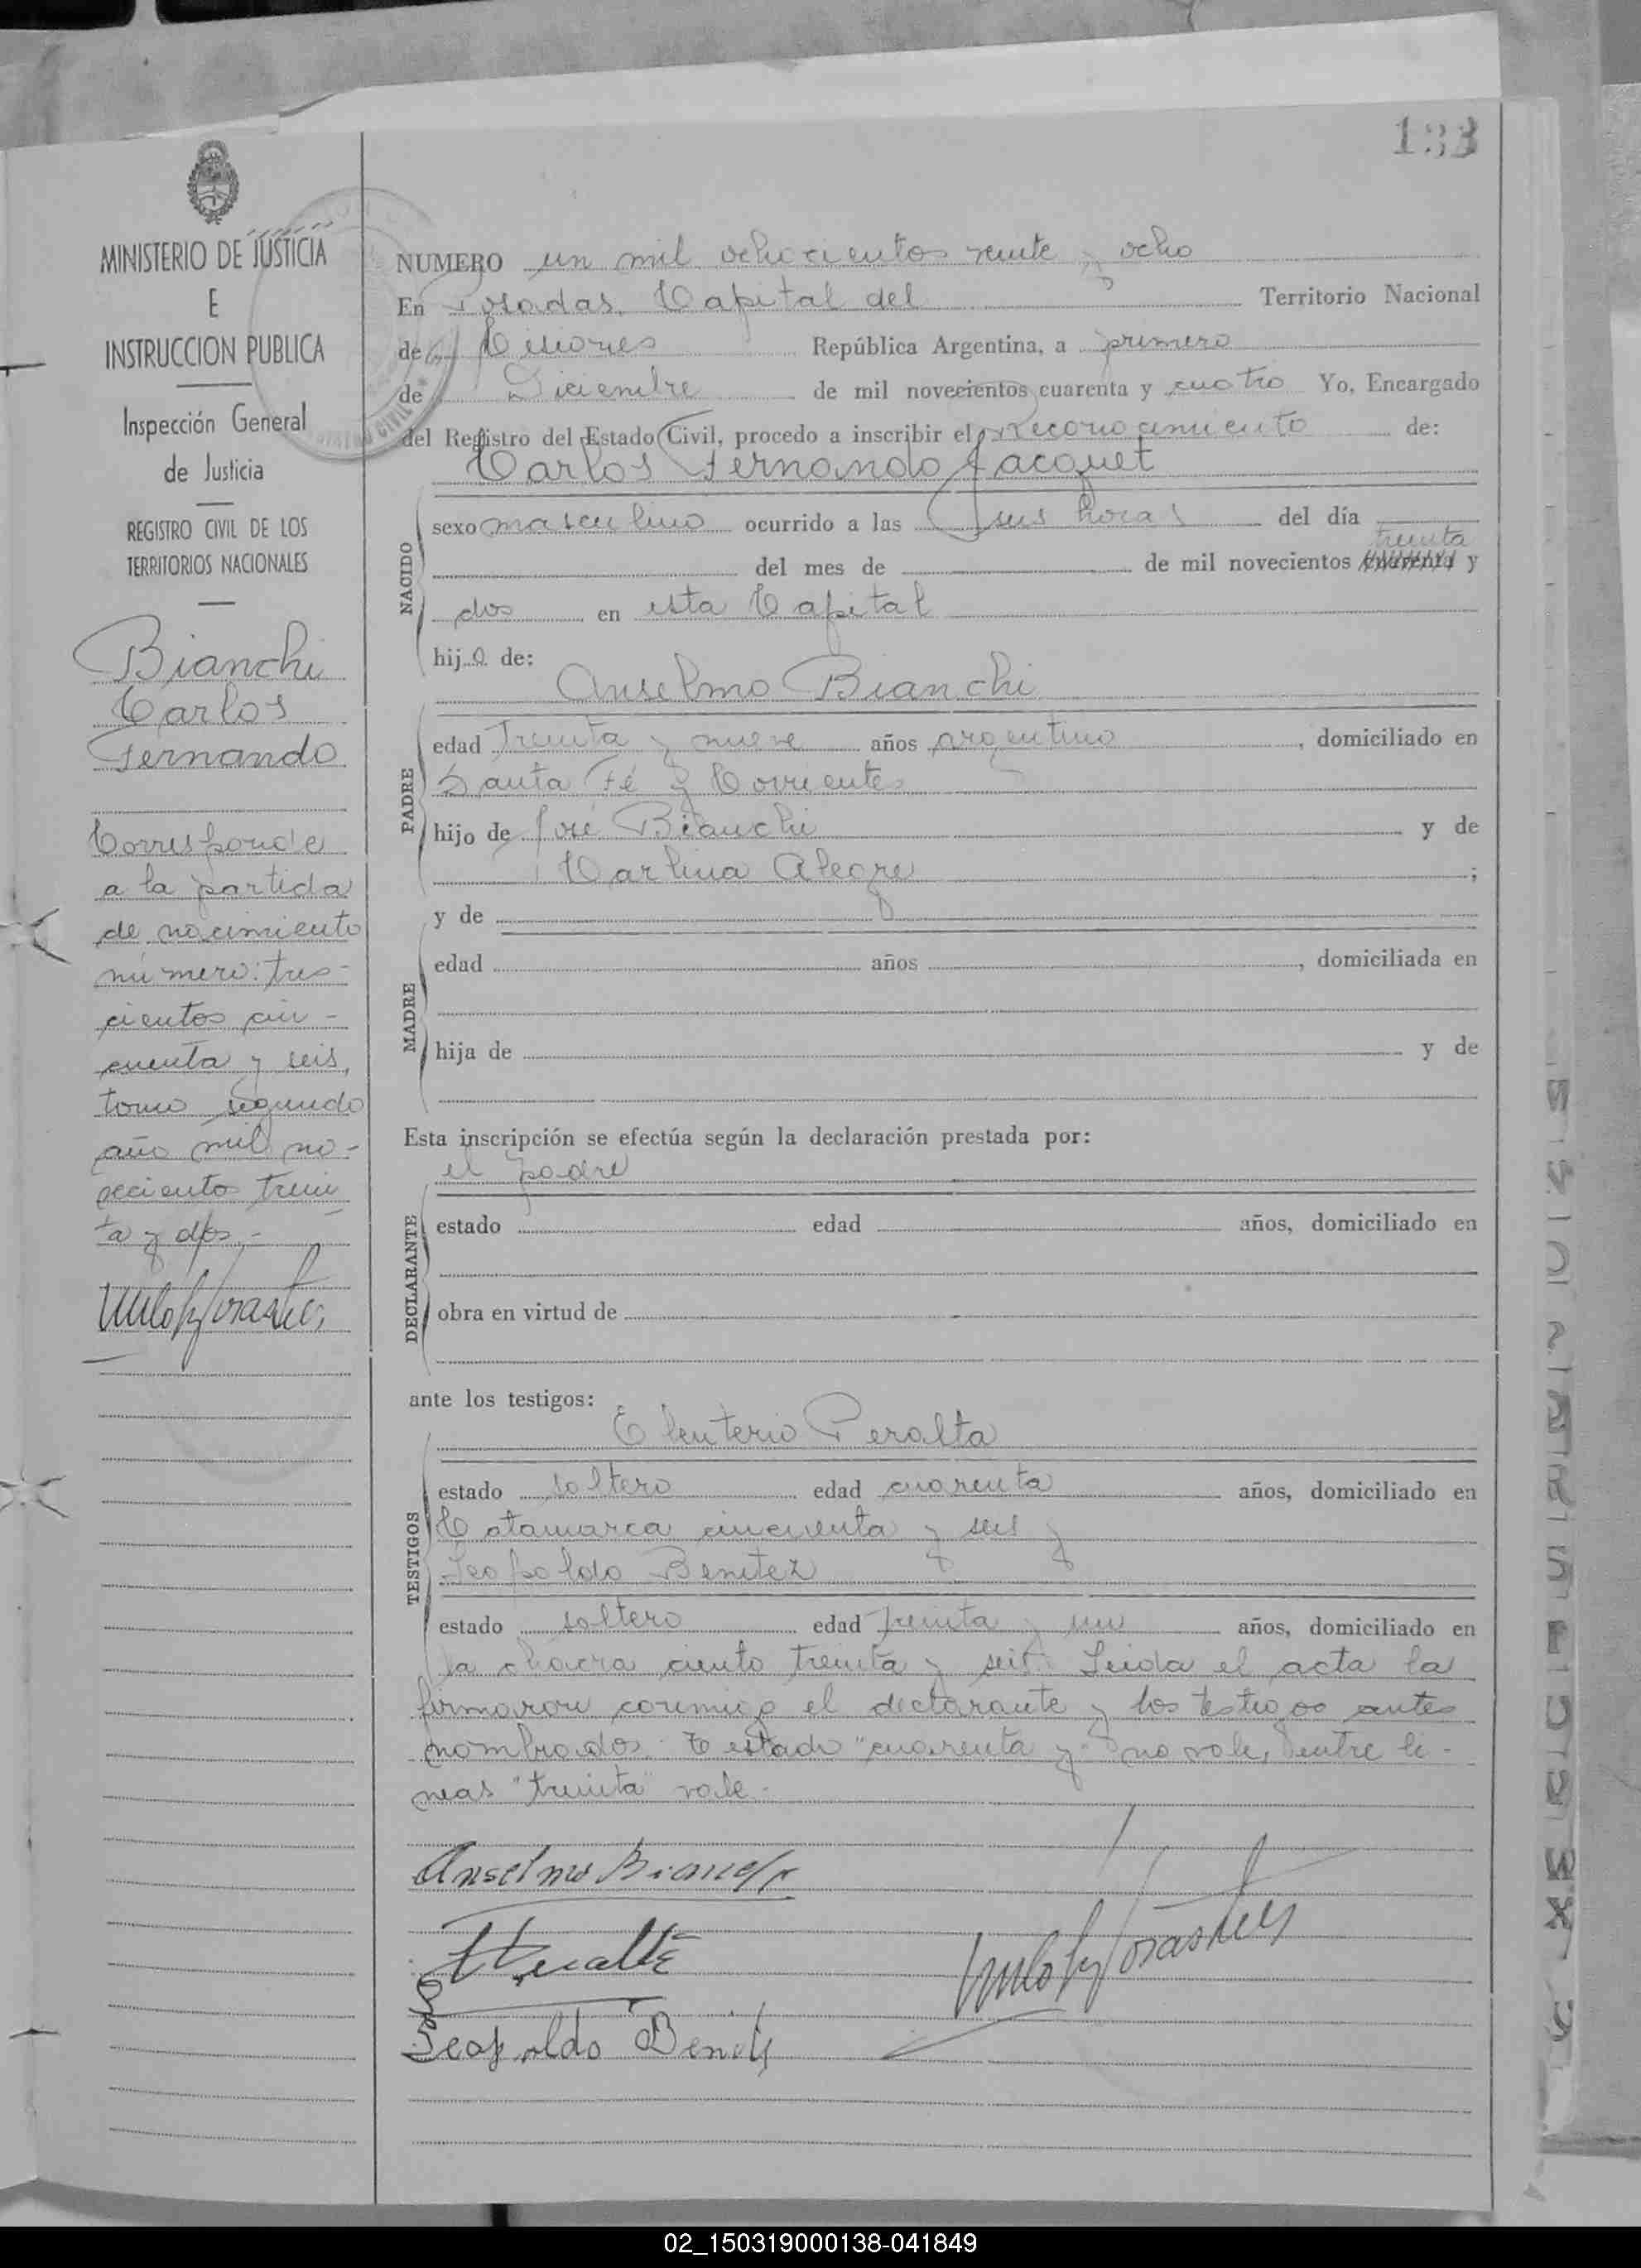 133
MINISTERIO DE JUSTICIA
E
INSTRUCCION PUBLICA
Inspección General
de Justicia
REGISTRO CIVIL DE LOS
TERRITORIOS NACIONALES
Bianchi
Carlos
Fernando
Corresponde
a la partida
de nacimiento
número: tres-
cientos cin-
cuenta y seis,
tomo segundo
año mil no-
veciento trein
ta y dos.-
NUMERO un mil ochocientos veinte y ocho
En Posadas, Capital del Territorio Nacional
de Misiones República Argentina, a primero
de Diciembre de mil novecientos cuarenta y cuatro Yo, Encargado
del Registro del Estado Civil, procedo a inscribir el Reconocimiento de:
Carlos Fernando Jacquet
NACIDO
sexo masculino ocurrido a las seis horas del día
treinta
del mes de de mil novecientos cuarenta y
dos en esta Capital
hijo de:
Anselmo Bianchi
PADRE
edad treinta y nueve años argentino, domiciliado en
Santa Fé y Corrientes
hijo de José Bianchi y de
Carlina Alegre;
y de
MADRE
edad años , domiciliada en
hija de y de
Esta inscripción se efectúa según la declaración prestada por:
el padre
DECLARANTE
estado edad años, domiciliado en
obra en virtud de
ante los testigos:
Eleuterio Peralta
TESTIGOS
estado soltero edad cuarenta años, domiciliado en
Catamarca cincuenta y seis y
Leopoldo Benitez
estado soltero edad treinta y un años, domiciliado en
la chacra ciento treinta y seis. Leida el acta la
firmaron conmigo el declarante y los testigos antes
nombrados. Testado "cuarenta y" no vale, entre lí-
neas "treinta" vale.-
Anselmo Bianchi
Peralta
Leopoldo Benitez
02_150319000138-041849